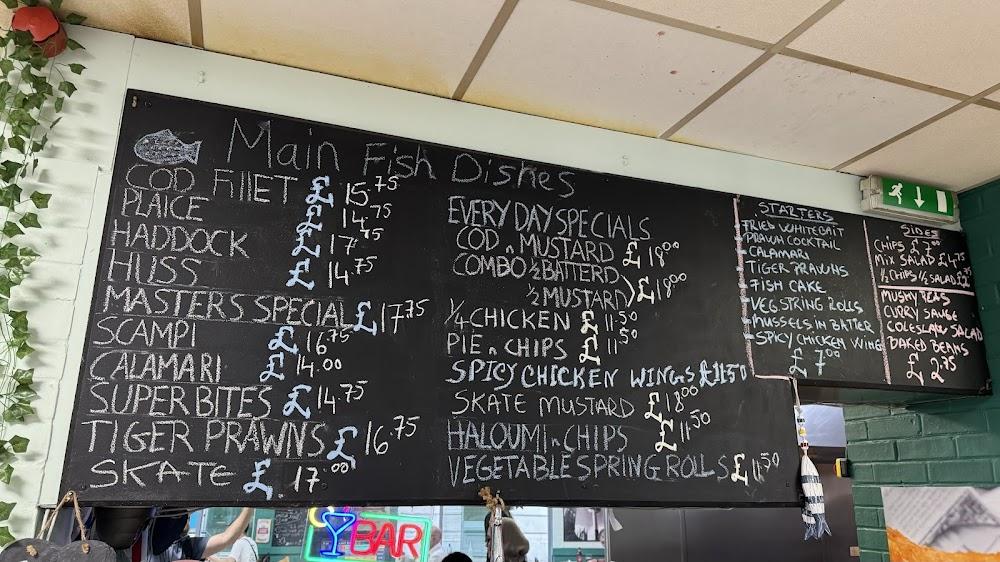 Main Fish Dishes
COD FILLET £ 15.75
PLAICE £ 14.75
HADDOCK £ 17.75
HUSS £ 14.75
MASTERS SPECIAL £17.75
SCAMPI £ 16.75
CALAMARI £ 14.00
SUPER BITES £ 14.75
TIGER PRAWNS £ 16.75
SKATE £. 17.00
EVERY DAY SPECIALS
COD n MUSTARD £ 18.00
COMBO ½ BATTERD
½ MUSTARD £18.00
¼ CHICKEN £ 11.50
PIE n CHIPS £ 11.50
SPICY CHICKEN WINGS £11.50
SKATE MUSTARD £18.00
HALOUMI n CHIPS £11.50
VEGETABLE SPRING ROLLS £11.50
STARTERS
FRIED WHITEBAIT
PRAWN COCKTAIL
- CALAMARI
- TIGER PRAWNS
- FISH CAKE
- VEG STRING ROLLS
- MUSSELS IN BATTER
- SPICY CHICKEN WING
£ 7.00
SIDES
CHIPS £
MIX SALAD £4.75
½ CHIPS ½ SALAD
MUSHY PEAS
CURRY SAUCE
COLESLAW SALAD
BAKED BEANS
£ 2.75
BAR